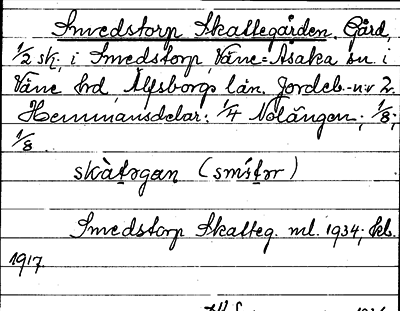 Smedstorp Skattegården, Gård,
1/2 sk., i Smedstorp, Väne-Åsaka sn. i
Väne hd, Älfsborgs län. Jordeb.-nr 2.
Hemmansdelar: 1/4 Nolängen; 1/8;
1/8.
skàtəgan (smístər)
Smedstorp Skatteg. ml. 1934; kb.
1917.